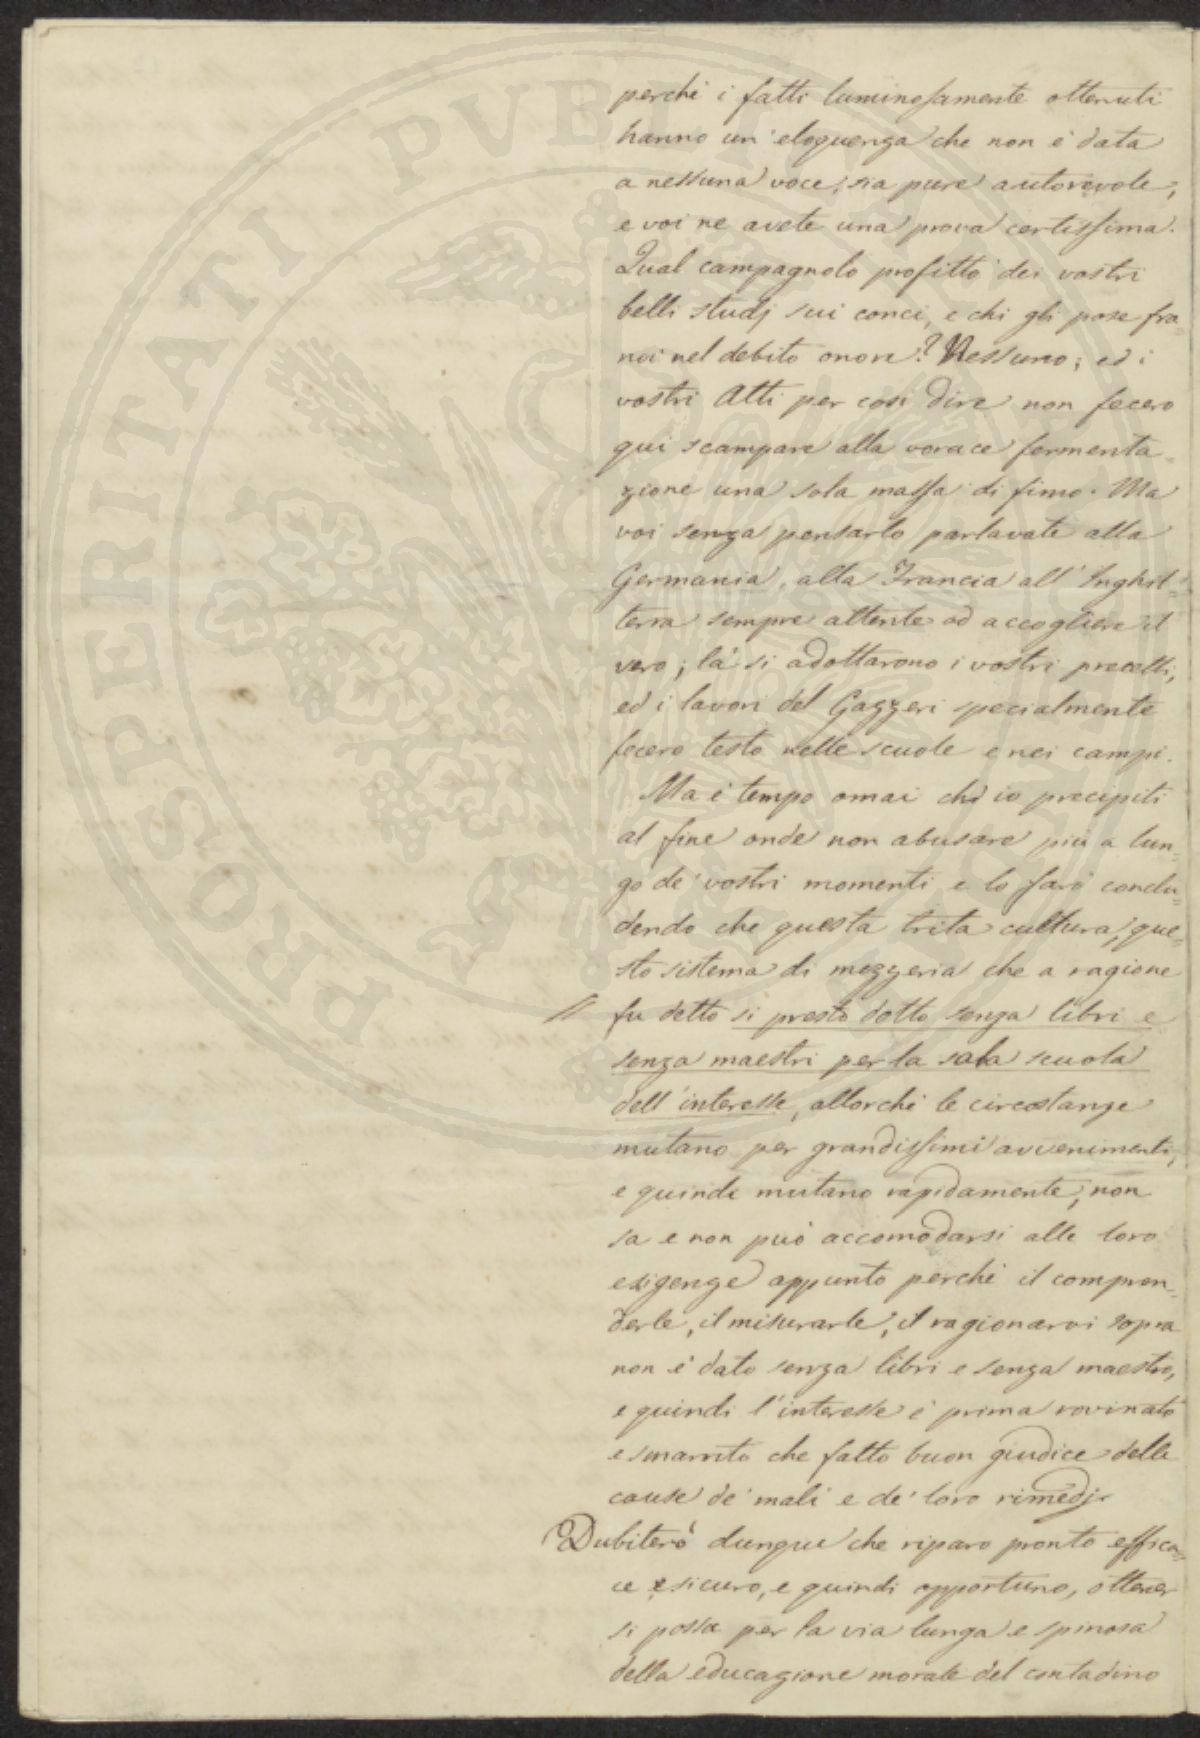 PROSPERITATI PVBLI
perchè i fatti luminosamente ottenuti
hanno un'eloquenza che non è data
a nessuna voce, sia pure autorevole,
e voi ne avete una prova certissima.
Qual campagnolo profittò dei vostri
belli studj sui conci, e chi gli pose fra
noi nel debito onore? Nessuno; ed i
vostri Atti per così dire non fecero
qui scampare alla vorace fermenta=
zione una sola massa di fimo. Ma
voi senza pensarlo parlavate alla
Germania, alla Francia all'Inghil=
terra sempre attente ad accogliere il
vero; là si adottarono i vostri precetti,
ed i lavori del Gazzeri specialmente
fecero testo nelle scuole e nei campi.
Ma è tempo omai ch'io precipiti
al fine onde non abusare più a lun=
go de' vostri momenti e lo farò conclu=
dendo che questa trita cultura, que=
sto sistema di mezzeria che a ragione
// fu detto si presto dotto senza libri e
senza maestri per la sola scuola
dell'interesse, allorchè le circostanze
mutano per grandissimi avvenimenti,
e quindi mutano rapidamente, non
sa e non può accomodarsi alle loro
esigenze appunto perchè il compren=
derle, il misurarle, il ragionarvi sopra
non è dato senza libri e senza maestro,
e quindi l'interesse è prima rovinato
e smarrito che fatto buon giudice delle
cause de' mali e de' loro rimedj.
Dubiterò dunque che riparo pronto effica=
ce e sicuro, e quindi opportuno, ottener
si possa per la via lunga e spinosa
della educazione morale del contadino